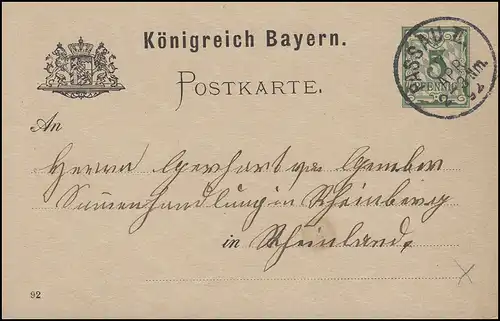 Königreich Bayern.
PASSAU II
5
PFENNIG
POSTKARTE.
An
Herrn Gerhart von
Samenhandlung in Rheinberg
in Rheinland.
92